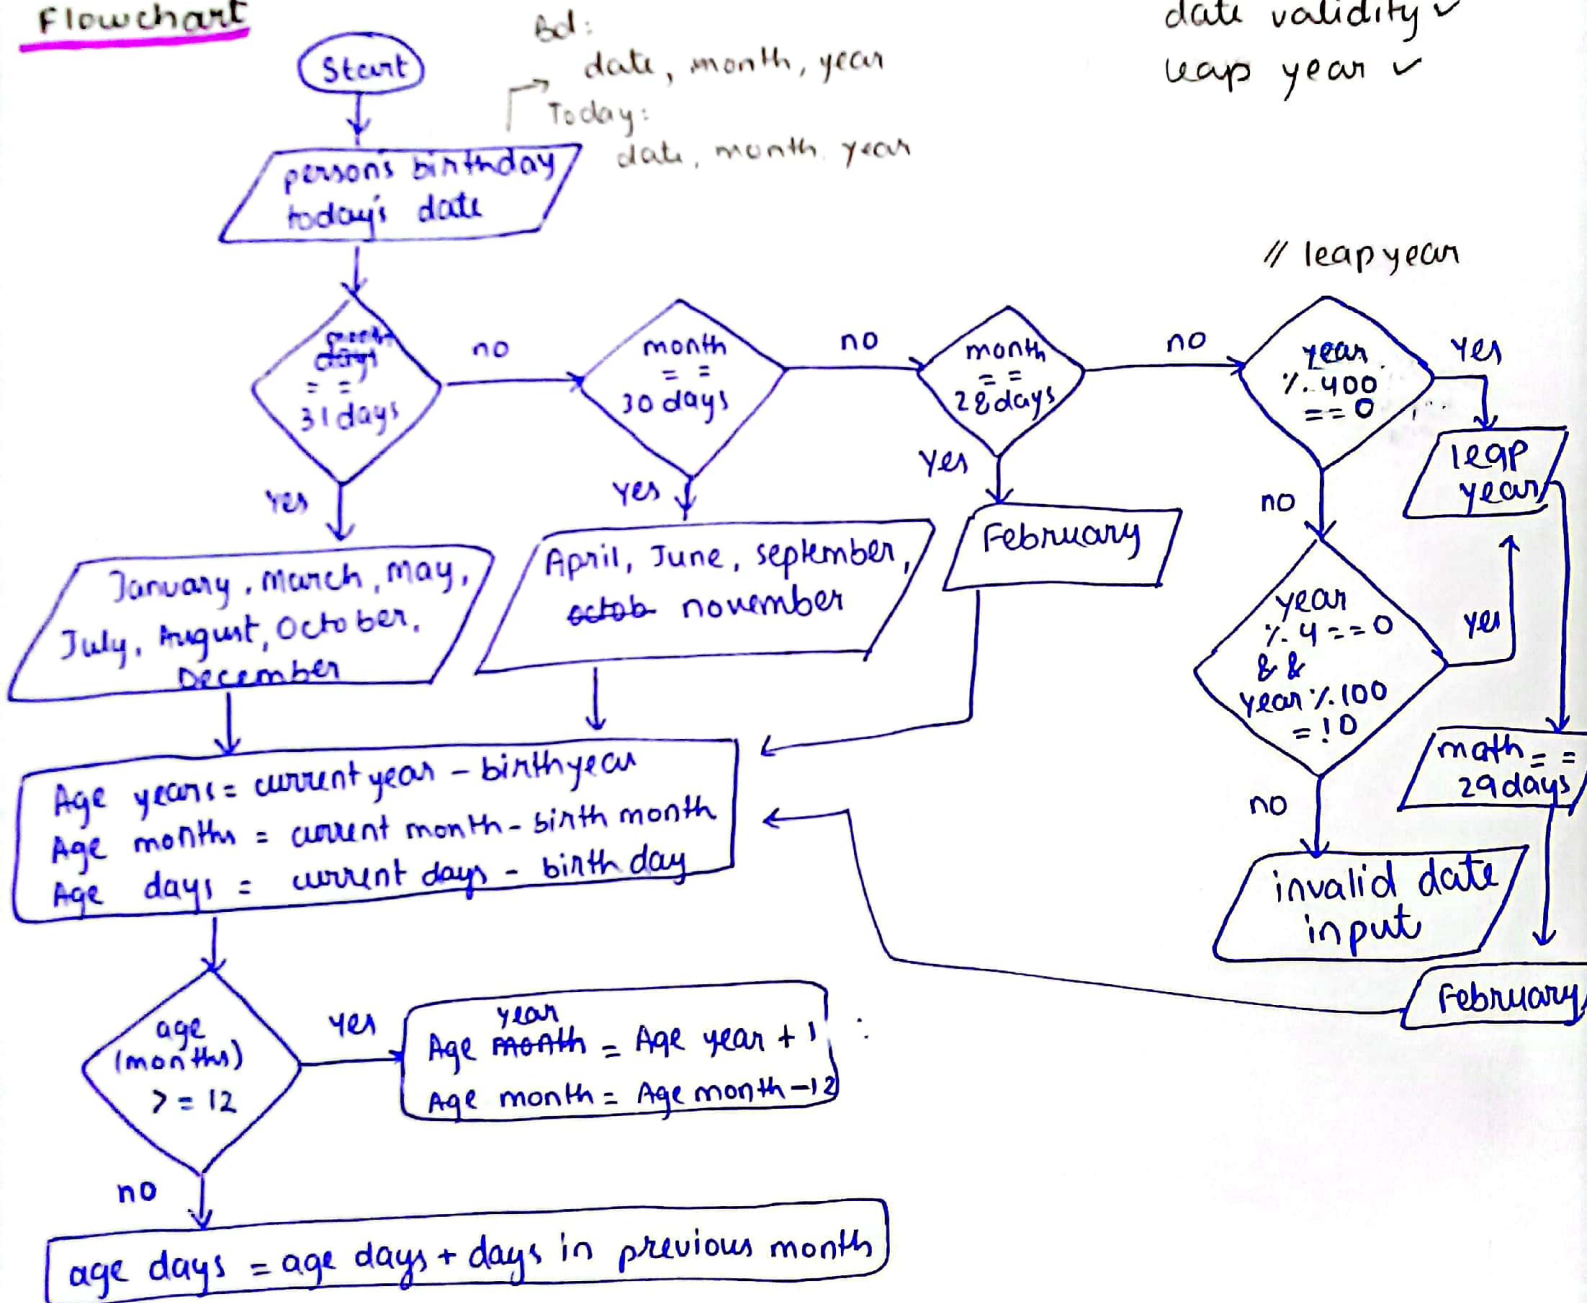 Flowchart
date validity ✓
leap year ✓
Bd:
date, month, year
Today:
date, month year
Start
person's birthday
today's date
// leap year
days
= =
31 days
no
Yes
month
= =
30 days
no
Yes
month
= =
28 days
no
Yes
year
% 400
== 0
Yes
no
leap
year
January, March, May,
July, August, October,
December
April, June, September,
octob november
February
year
% 4 == 0
& &
year % 100
= ! 0
yes
no
math = =
29 days
invalid date
input
February
Age years = current year - birthyear
Age months = current month - birth month
Age days = current days - birth day
age
(months)
> = 12
yes
no
year
Age month = Age year + 1
Age month = Age month - 12
age days = age days + days in previous month